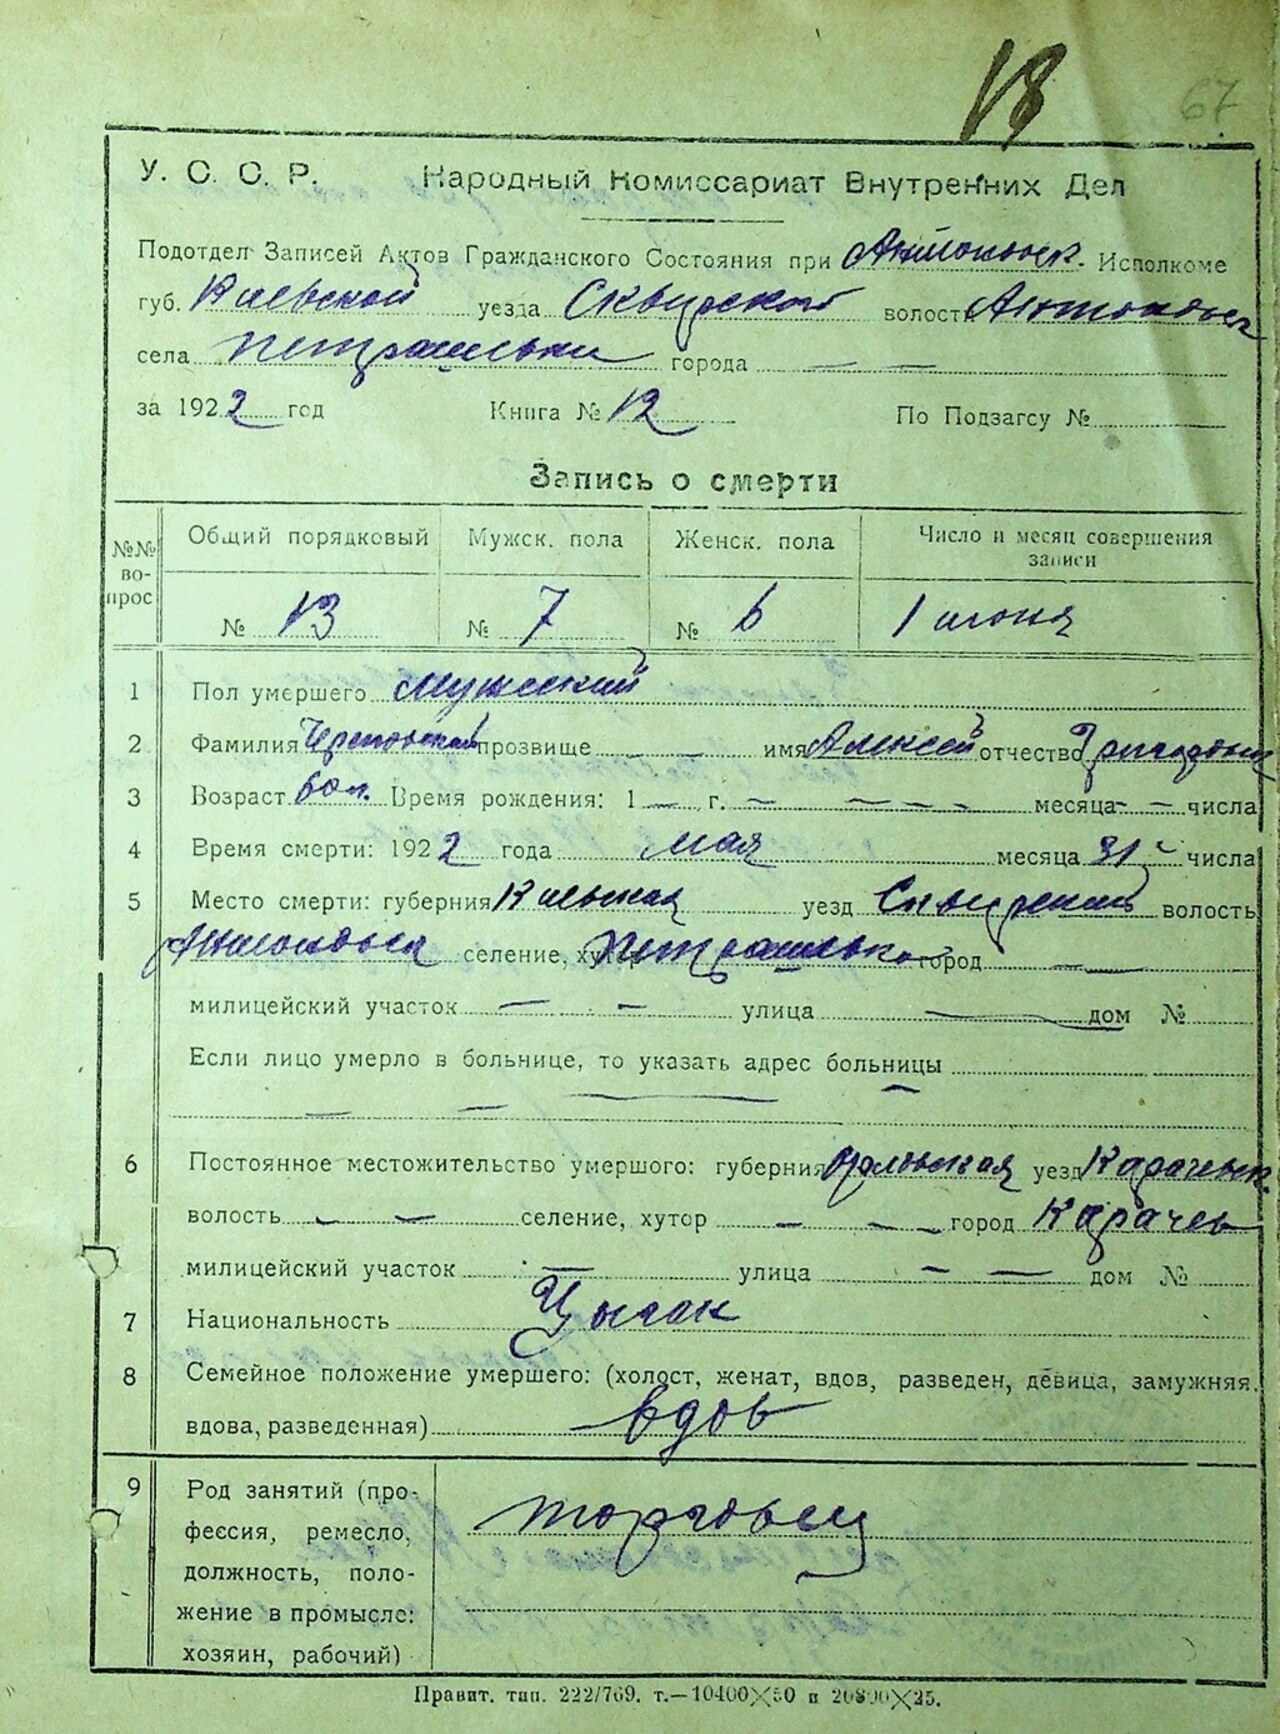 18 67
У. С. С. Р. Народный Комиссариат Внутренних Дел
Подотдел Записей Актов Гражданского Состояния при Антоновск. Исполкоме
губ. Киевской уезда Сквирского волости Антоновск
села города — —
за 1922 год Книга № 12 По Подзагсу №
Запись о смерти
№№ вопрос Общий порядковый Мужск. пола Женск. пола Число и месяц совершения записи
№ 13 № 7 № 6 1 июня
1 Пол умершего Мужеский
2 Фамилия прозвище — — имя Алексей отчество
3 Возраст 60 л. Время рождения: 1 — г. — — — — месяца — — числа
4 Время смерти: 1922 года мая месяца 31 числа
5 Место смерти: губерния Киевская уезд Сквирский волость
Антоновск селение, хутор город — —
милицейский участок — — улица — дом №
Если лицо умерло в больнице, то указать адрес больницы —
— — —
6 Постоянное местожительство умершего: губерния Орловская уезд Карачевск.
волость — — селение, хутор — — город Карачев
милицейский участок — улица — — дом №
7 Национальность Цыган
8 Семейное положение умершего: (холост, женат, вдов, разведен, девица, замужняя.
вдова, разведенная) вдов
9 Род занятий (про-
фессия, ремесло,
должность, поло-
жение в промысле:
хозяин, рабочий)
торговец
Правит. тип. 222/769. т.—10400×50 и 20800×25.